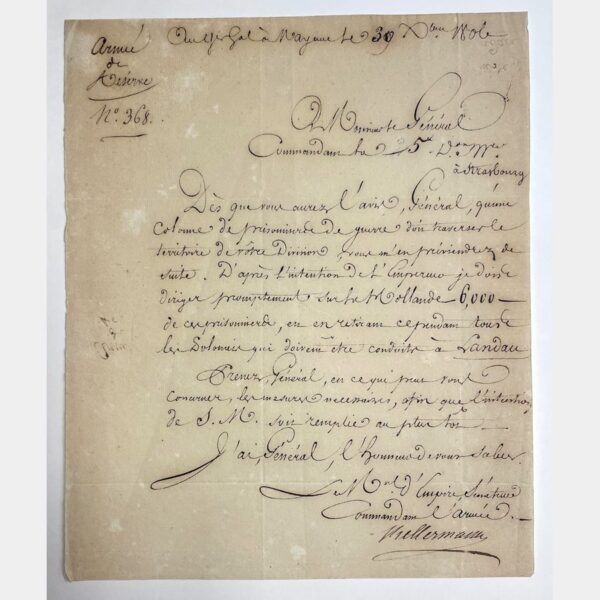 Au qer Gal à Mayence le 30 Xbre 1806
Armée
de
Réserve
N.º 368.
A Monsieur le Général
Commandant la 25e Don Mre
à Strasbourg
Dès que vous aurez l'avis, Général, qu'une
Colonne de prisonniers de guerre doit traverser le
territoire de vôtre Division, vous m'en préviendrez de
suite. D'après l'intention de l'Empereur je dois
diriger promptement sur la Hollande 6,000
de ces prisonniers, en en retirant cependant tous
les Polonais qui doivent être conduits à Landau.
Prenez, Général, en ce qui peut vous
concerner, les mesures nécessaires, afin que l'intention
de S. M. soit remplie au plus tôt.
J'ai, Général, l'honneur de vous saluer.
Le Mal d'Empire, Sénateur
Commandant l'Armée.
Kellermann